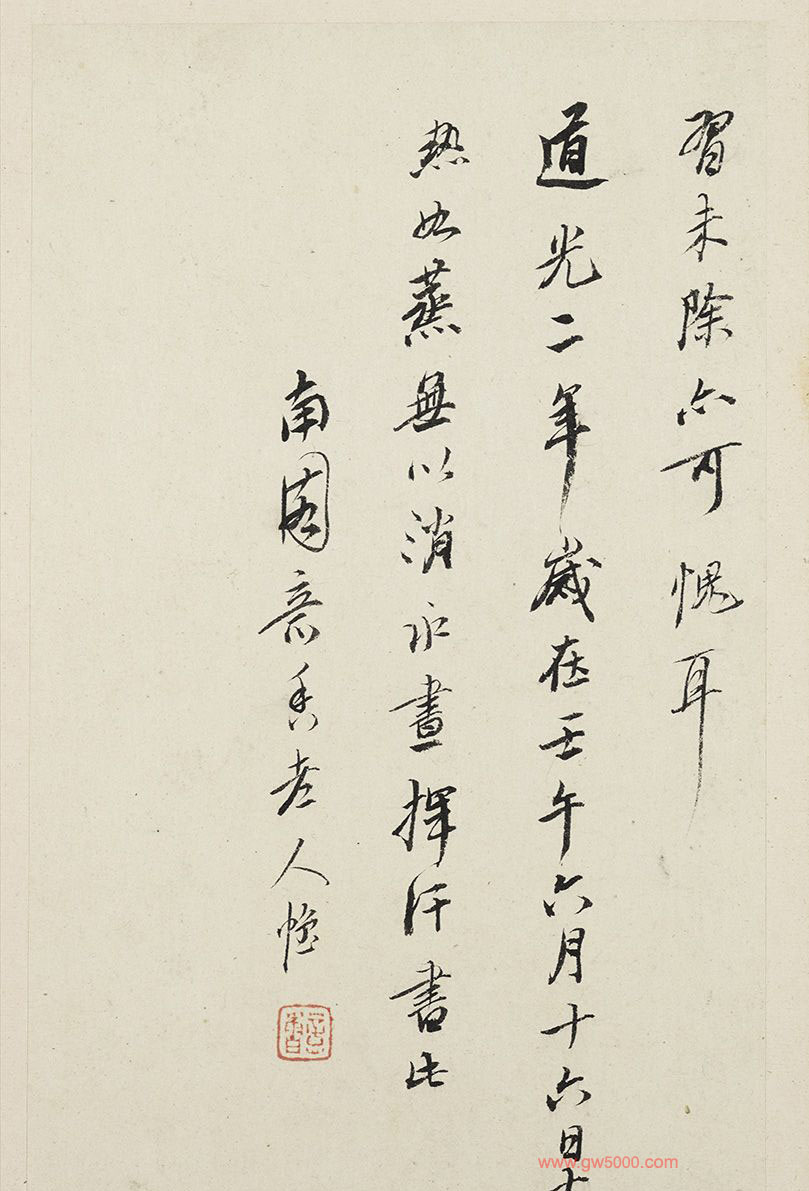 習未除亦可愧耳
道光二年歲在壬午六月十六日
熱如蒸無以消永晝揮汗書此
南園意香老人
www.gw5000.com